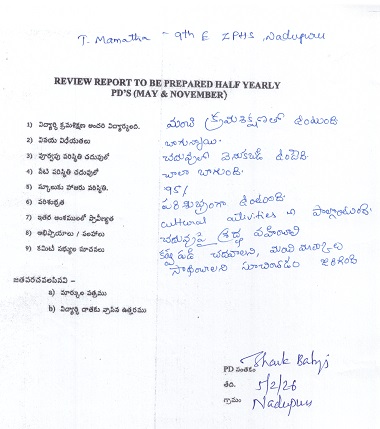 T. Mamatha - 9th E ZPHS, Nadupuru
REVIEW REPORT TO BE PREPARED HALF YEARLY
PD'S (MAY & NOVEMBER)
1) విద్యార్థి క్రమశిక్షణ అందరి విద్యార్థులది. మంచి క్రమశిక్షణలో ఉంటుంది
2) విషయ విధేయతలు బాగున్నాయి.
3) పూర్వపు పరిస్థితి చదువులో చదువులో వెనుకబడి ఉండేది.
4) నేటి పరిస్థితి చదువులో చాలా బాగుంది.
5) స్కూలుకు హాజరు పరిస్థితి. 95%
6) పరిశుభ్రత పరిశుభ్రంగా ఉంటుంది.
7) ఇతర అంశములలో ప్రావీణ్యత cultural activities లో పాల్గొంటుంది.
8) అభిప్రాయాలు / సలహాలు చదువుపై శ్రద్ధ వహించాలి
9) కమిటీ సభ్యుల సూచనలు కష్టపడి చదవాలని, మంచి మార్కులు
సాధించాలని సూచించడం జరిగింది
జతపరచవలసినవి –
a) మార్కుల పత్రము
b) విద్యార్థి దాతకు వ్రాసిన ఉత్తరము
PD సంతకం Shaik Babji
తేది. 5/2/26
గ్రామం Nadupuru